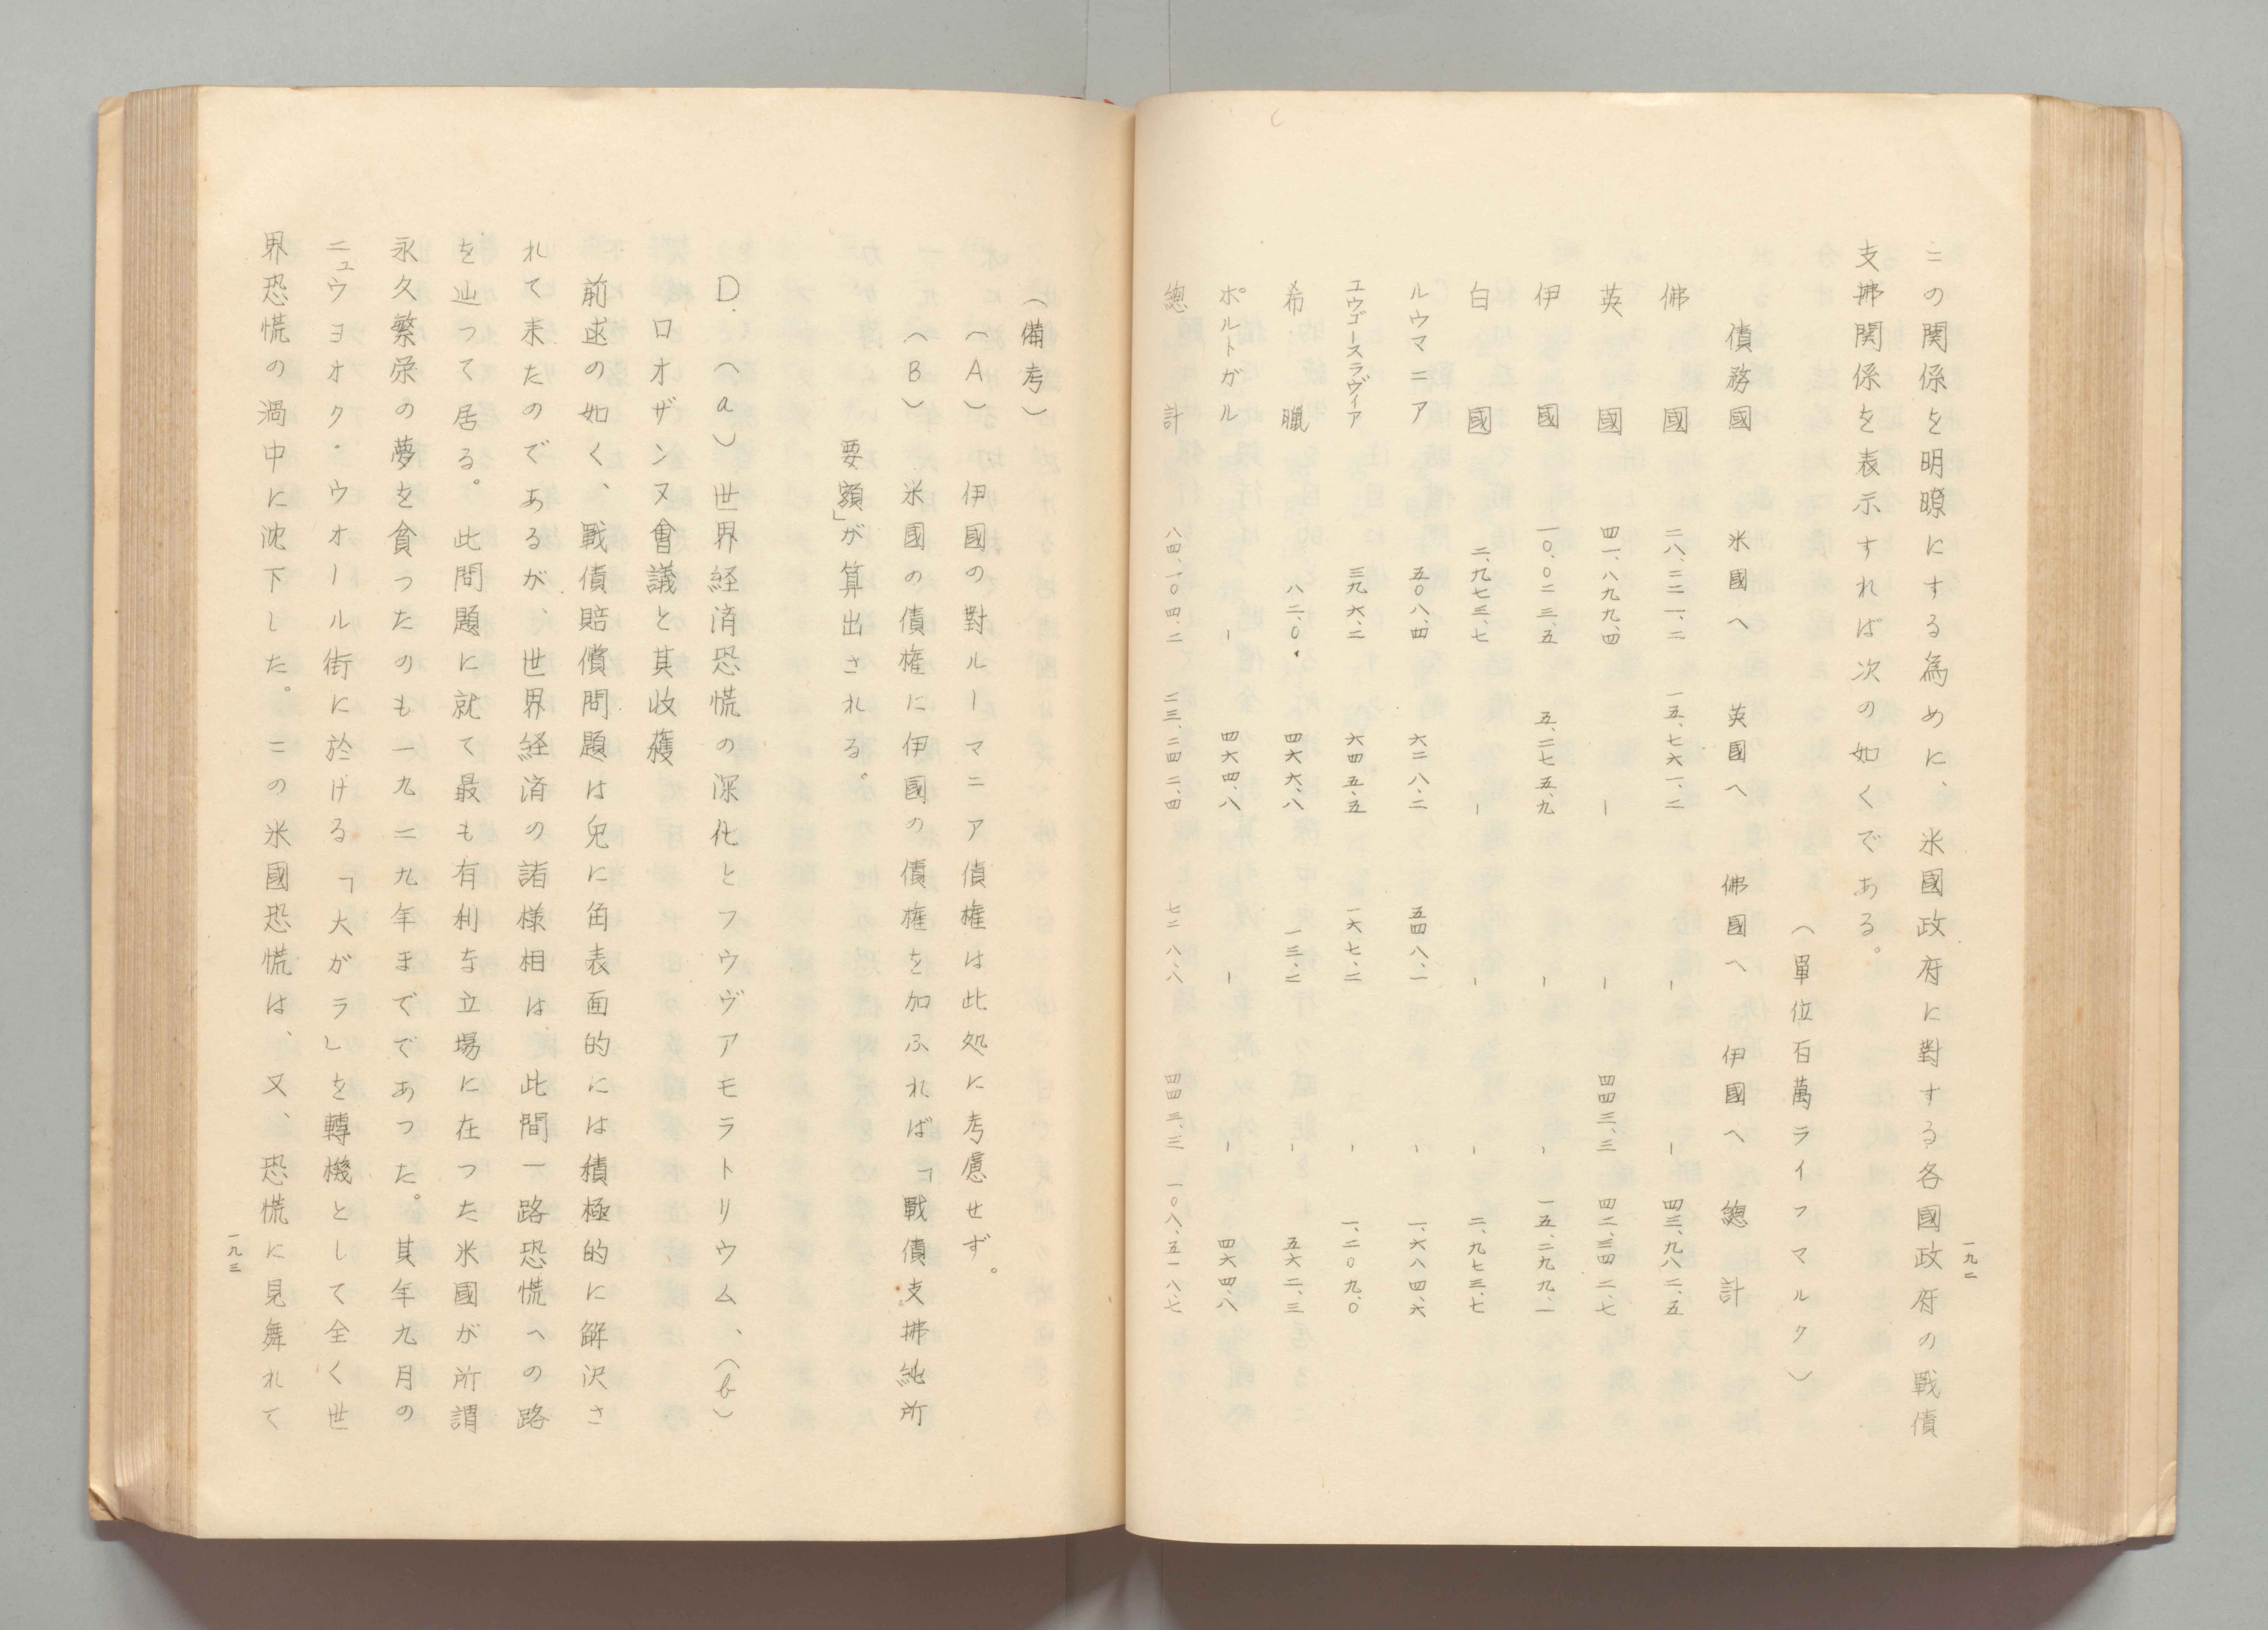 一九二
この関係を明瞭にする為めに、米國政府に對する各國政府の戰債
支拂関係を表示すれば次の如くである。
（單位百萬ライフマルク）
債務國 米國へ 英國へ 佛國へ 伊國へ 總計
佛國 二八、二二一、二 一五、七六一、二 － － 四三、九八二、五
英國 四一、八九九、四 － － 四四三、三 四二、三四二、七
伊國 一〇、〇二三、五 五、二七五、九 － － 一五、二九九、一
白國 二、九七三、七 － － － 二、九七三、七
ルウマニア 五〇八、四 六二八、二 五四八、一 － 一、六八四、六
ユウゴースラヴィア 三九六、二 六四五、五 一六七、二 － 一、二〇九、〇
希臘 八二、〇 四六六、八 一三、二 － 五六二、三
ポルトガル － 四六四、八 － － 四六四、八
總計 八四、一〇四、二 二三、二四二、四 七二八、八 四四三、三 一〇八、五一八、七
（備考）
（A）伊國の對ルーマニア債権は此処に考慮せず。
（B）米國の債権に伊國の債権を加ふれば「戰債支拂純所
要額」が算出される。
D.（a）世界経済恐慌の深化とフウヴアモラトリウム、（b）
ロオザンヌ會議と其收穫
前述の如く、戰債賠償問題は兎に角表面的には積極的に解決さ
れて来たのであるが、世界経済の諸様相は此間一路恐慌への路
を辿つて居る。此問題に就て最も有利な立場に在つた米國が所謂
永久繁栄の夢を貪つたのも一九二九年まででであつた。其年九月の
ニュウヨオク・ウオール街に於ける「大がラ」を轉機として全く世
界恐慌の渦中に沈下した。この米國恐慌は、又、恐慌に見舞れて
一九三